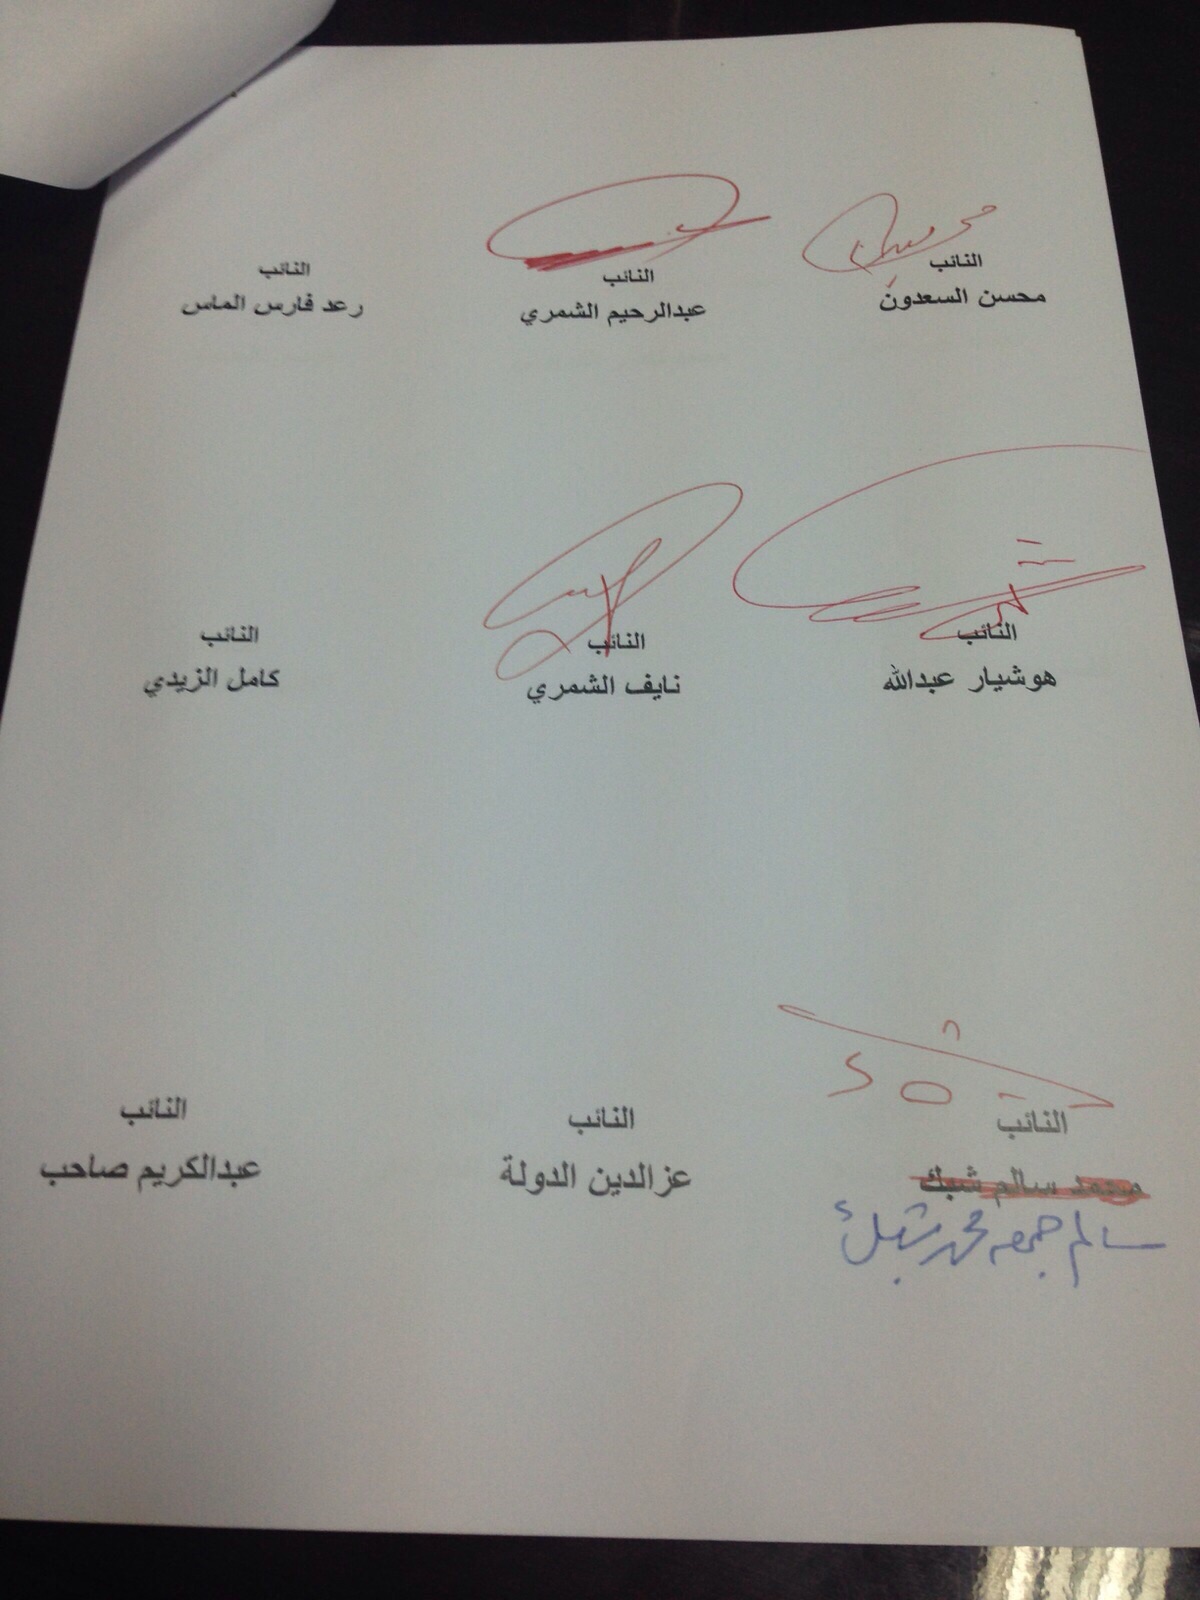 النائب
محسن السعدون
النائب
عبدالرحيم الشمري
النائب
رعد فارس الماس
النائب
هوشيار عبدالله
النائب
نايف الشمري
النائب
كامل الزيدي
النائب
محمد سالم شبك
سالم جمعه محمد شبك
النائب
عزالدين الدولة
النائب
عبدالكريم صاحب